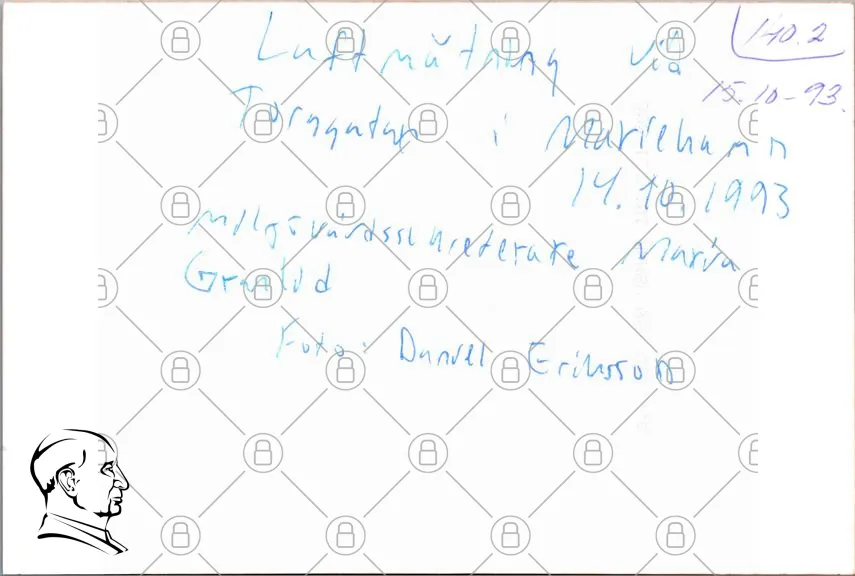 140.2
15.10-93.
Luftmätning via
Torggatan i Mariehamn
14.10.1993
Miljövårdssekreterare Maria
Granlid
Foto: Daniel Eriksson